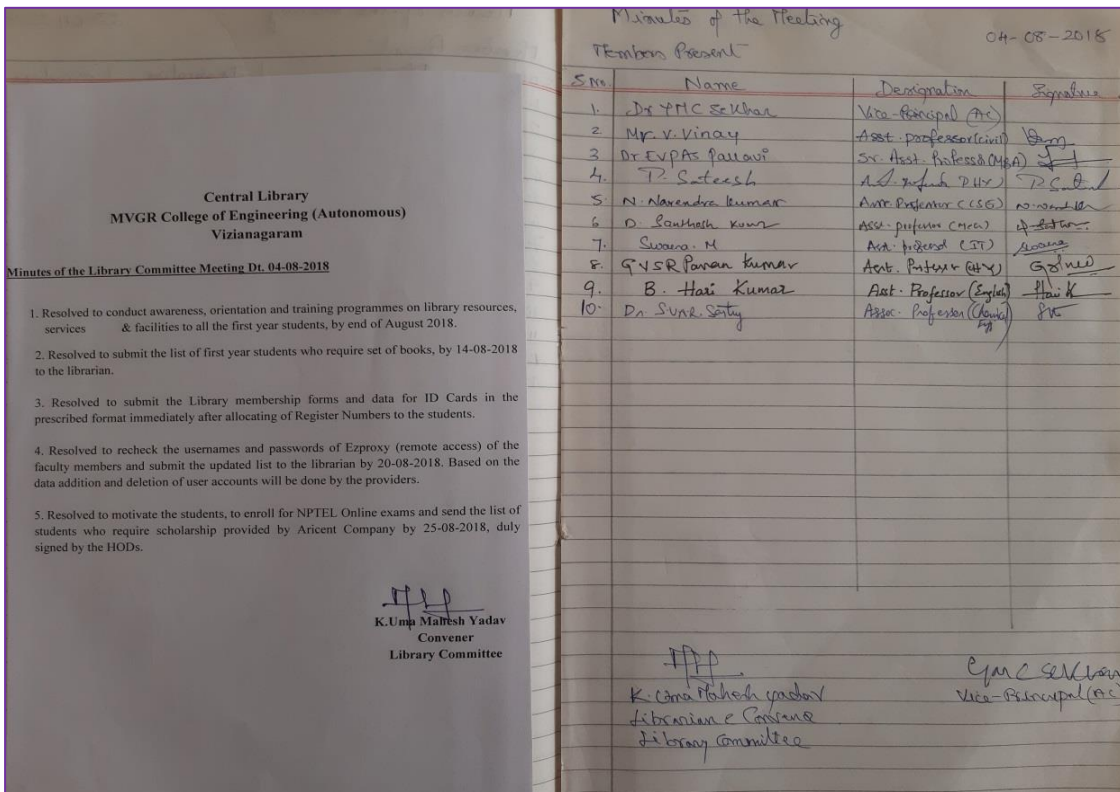 Central Library
MVGR College of Engineering (Autonomous)
Vizianagaram
Minutes of the Library Committee Meeting Dt. 04-08-2018
1. Resolved to conduct awareness, orientation and training programmes on library resources,
services & facilities to all the first year students, by end of August 2018.
2. Resolved to submit the list of first year students who require set of books, by 14-08-2018
to the librarian.
3. Resolved to submit the Library membership forms and data for ID Cards in the
prescribed format immediately after allocating of Register Numbers to the students.
4. Resolved to recheck the usernames and passwords of Ezproxy (remote access) of the
faculty members and submit the updated list to the librarian by 20-08-2018. Based on the
data addition and deletion of user accounts will be done by the providers.
5. Resolved to motivate the students, to enroll for NPTEL Online exams and send the list of
students who require scholarship provided by Aricent Company by 25-08-2018, duly
signed by the HODs.
K.Uma Mahesh Yadav
Convener
Library Committee
Minutes of the Meeting
04-08-2018
Members Present
S No. Name Designation Signature
1. Dr YMC Sekhar Vice-Principal (AC)
2. Mr. V. Vinay Asst. professor (civil)
3 Dr EVPAS Pallavi Sr. Asst. Professor (MBA)
4. P. Sateesh
5. N. Narendra Kumar Asst. Professor (CSE)
6 D. Santhosh Kumar Asst. professor
7. Swarna. M Asst. professor (IT) Swarna
8. GVSR Pavan Kumar Asst. Professor
9. B. Hari Kumar Asst. Professor (English) Hari K
10. Dr. Assoc. Professor
K. Uma Mahesh Yadav
Librarian & Convener
Library Committee
YMC Sekhar
Vice-Principal (AC)